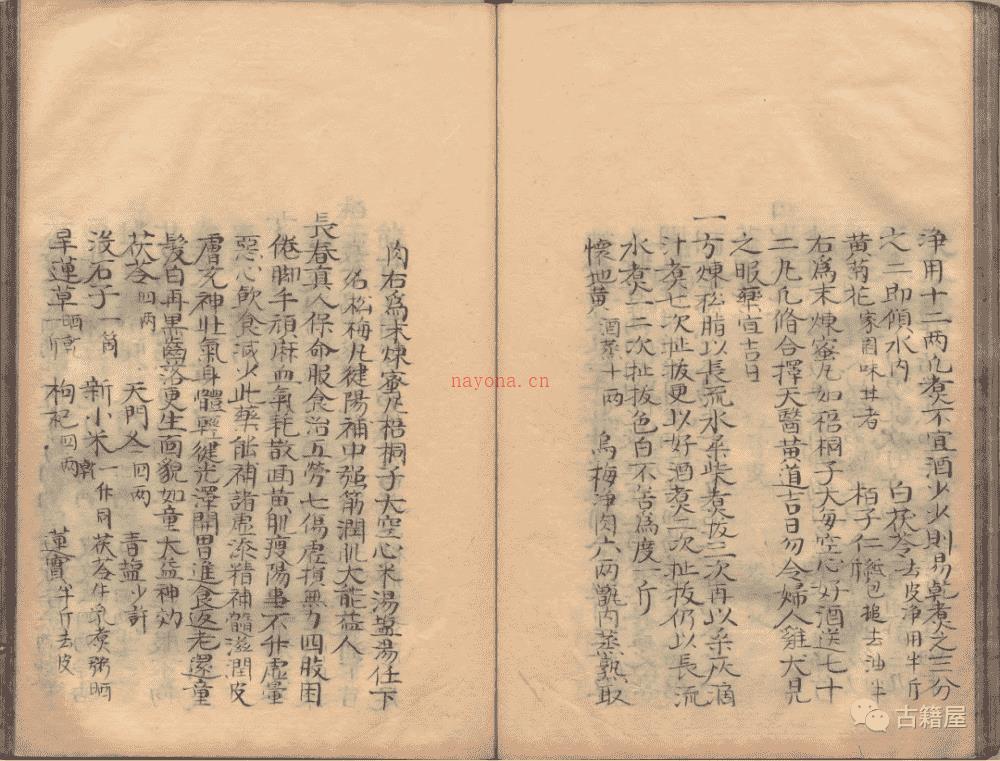 淨用十二兩凡煮不宜酒少少則易乾煮之三分
之二即傾水內　白茯苓去皮淨用半斤
黃菊花家園味甘者　栢子仁紙包搥去油半斤
右為末煉蜜丸如梧桐子大每空心好酒送七十
二丸凡脩合擇天醫黃道吉日勿令婦人雞犬見
之服藥宜吉日
一方煉松脂以長流水桑柴煮拔三次再以桑灰滴
汁煮七次扯拔更以好酒煮二次扯拔仍以長流
水煮一二次扯拔色白不苦為度一斤
懷地黃酒蒸十兩　烏梅淨肉六兩甑內蒸熟取
肉右為末煉蜜丸梧桐子大空心米湯鹽湯任下
名松梅丸健陽補中强筋潤肌大能益人
長春真人保命服食治五勞七傷虛損無力四肢困
倦脚手頑麻血氣耗散面黃肌瘦陽事不升虛暈
惡心飲食減少此藥能補諸虛添精補髓滋潤皮
膚充神壯氣身體輕健光澤開胃進食返老還童
髮白再黑齒落更生面貌如童大益神効
茯苓四兩　天門冬四兩　青鹽少許
沒石子一箇　新小米一斤同茯苓牛乳煮粥晒乾
旱蓮草一斤晒乾　枸杞四兩　蓮實半斤去皮
nayona.cn
古籍屋